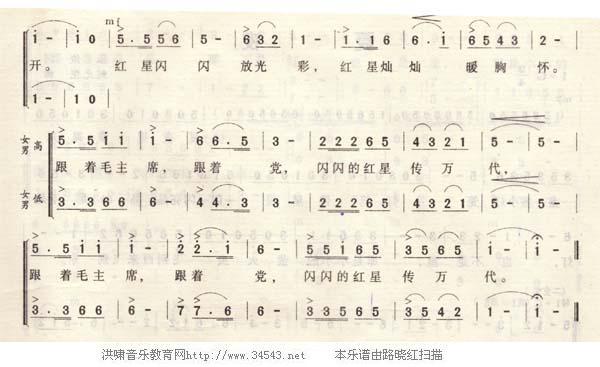 mf
i - | i 0 | 5. 5 5 6 | 5 - | 6 3 2 | 1 - | 1. 1 6 | 6. i | 6 5 4 3 | 2 - |
开。 红星闪 闪 放光 彩，红星灿 灿 暖胸 怀。
1 - | 1 0 |
女男 高 5. 5 i i | i - | 6 6. 5 | 3 - | 2 2 2 6 5 | 4 3 2 1 | 5 - | 5 - |
跟着毛主 席，跟着 党，闪闪的红星 传万 代，
女男 低 3. 3 6 6 | 6 - | 4 4. 3 | 3 - | 2 2 2 6 5 | 4 3 2 1 | 5 - | 5 - |
5. 5 i i | i - | 2 2. i | 6 - | 5 5 i 6 5 | 3 5 6 5 | i - | i - |
跟着毛主 席，跟着 党，闪闪的红星 传万 代。
3. 3 6 6 | 6 - | 7 7. 6 | 6 - | 3 3 5 6 5 | 3 5 6 5 | 1 - | i - |
洪啸音乐教育网http://www.34543.net 本乐谱由路晓红扫描